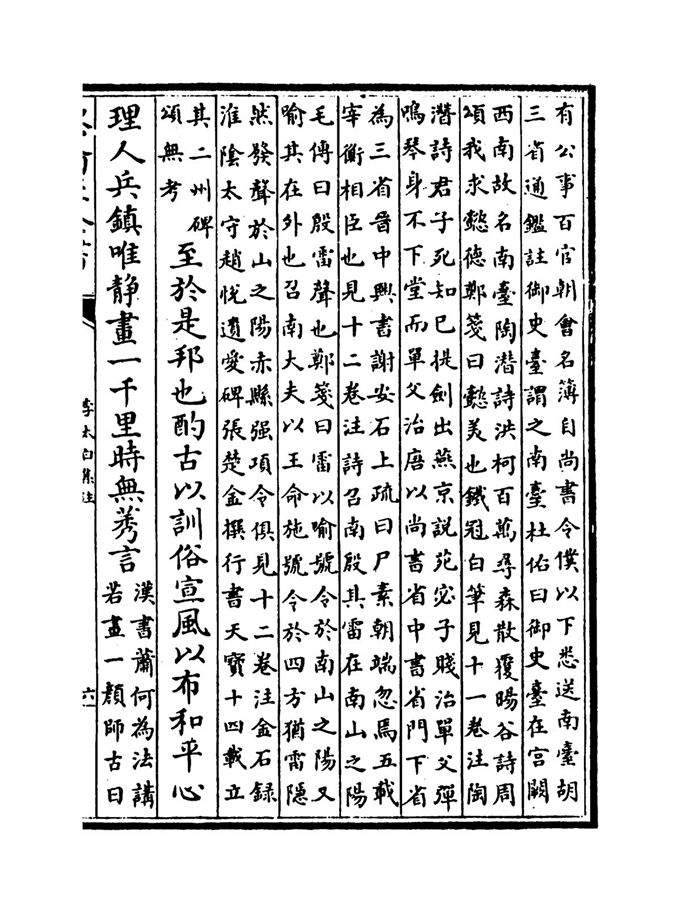 有公事百官朝會名簿自尚書令僕以下悉送南臺胡
三省通鑑註御史臺謂之南臺杜佑曰御史臺在宫闕
西南故名南臺陶潛詩洪柯百萬尋森散覆暘谷詩周
頌我求懿德鄭箋曰懿美也鐵冠白筆見十一卷注陶
潛詩君子死知已提劍出燕京說苑宓子賤治單父彈
鳴琴身不下堂而單父治唐以尚書省中書省門下省
為三省晉中興書謝安石上疏曰尸素朝端忽焉五載
宰衡相臣也見十二卷注詩召南殷其雷在南山之陽
毛傳曰殷雷聲也鄭箋曰雷以喻號令於南山之陽又
喻其在外也召南大夫以王命施號令於四方猶雷隱
然發聲於山之陽赤縣强項令俱見十二卷注金石録
淮陰太守趙悅遺愛碑張楚金撰行書天寶十四載立
其二州碑
頌無考
至於是邦也酌古以訓俗宣風以布和平心
理人兵鎮唯静畫一千里時無莠言
漢書蕭何為法講
若畫一顔師古曰
李太白集注
六